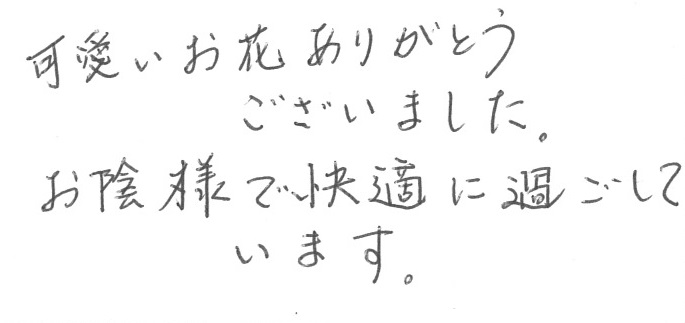 可愛いお花ありがとう
ございました。
お陰様で快適に過ごして
います。